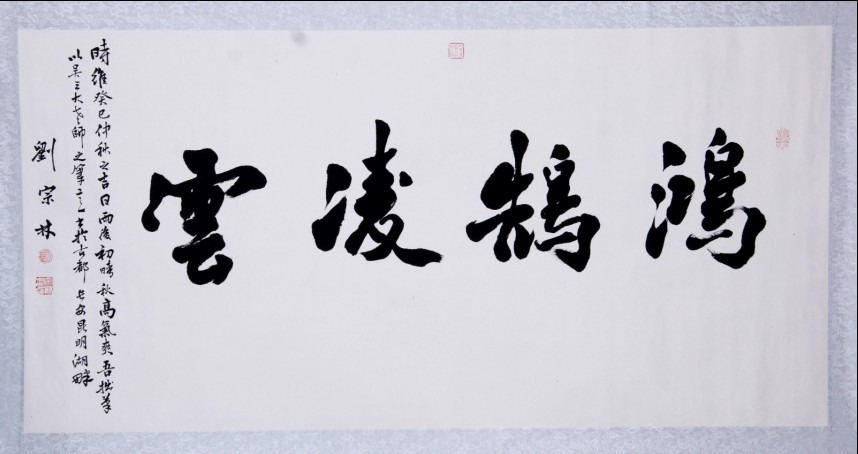 鴻鵠凌雲
時維癸巳仲秋之吉日雨後初晴秋高氣爽吾拙筆
以吴三大老師之筆意書於古都長安昆明湖畔
劉宗林